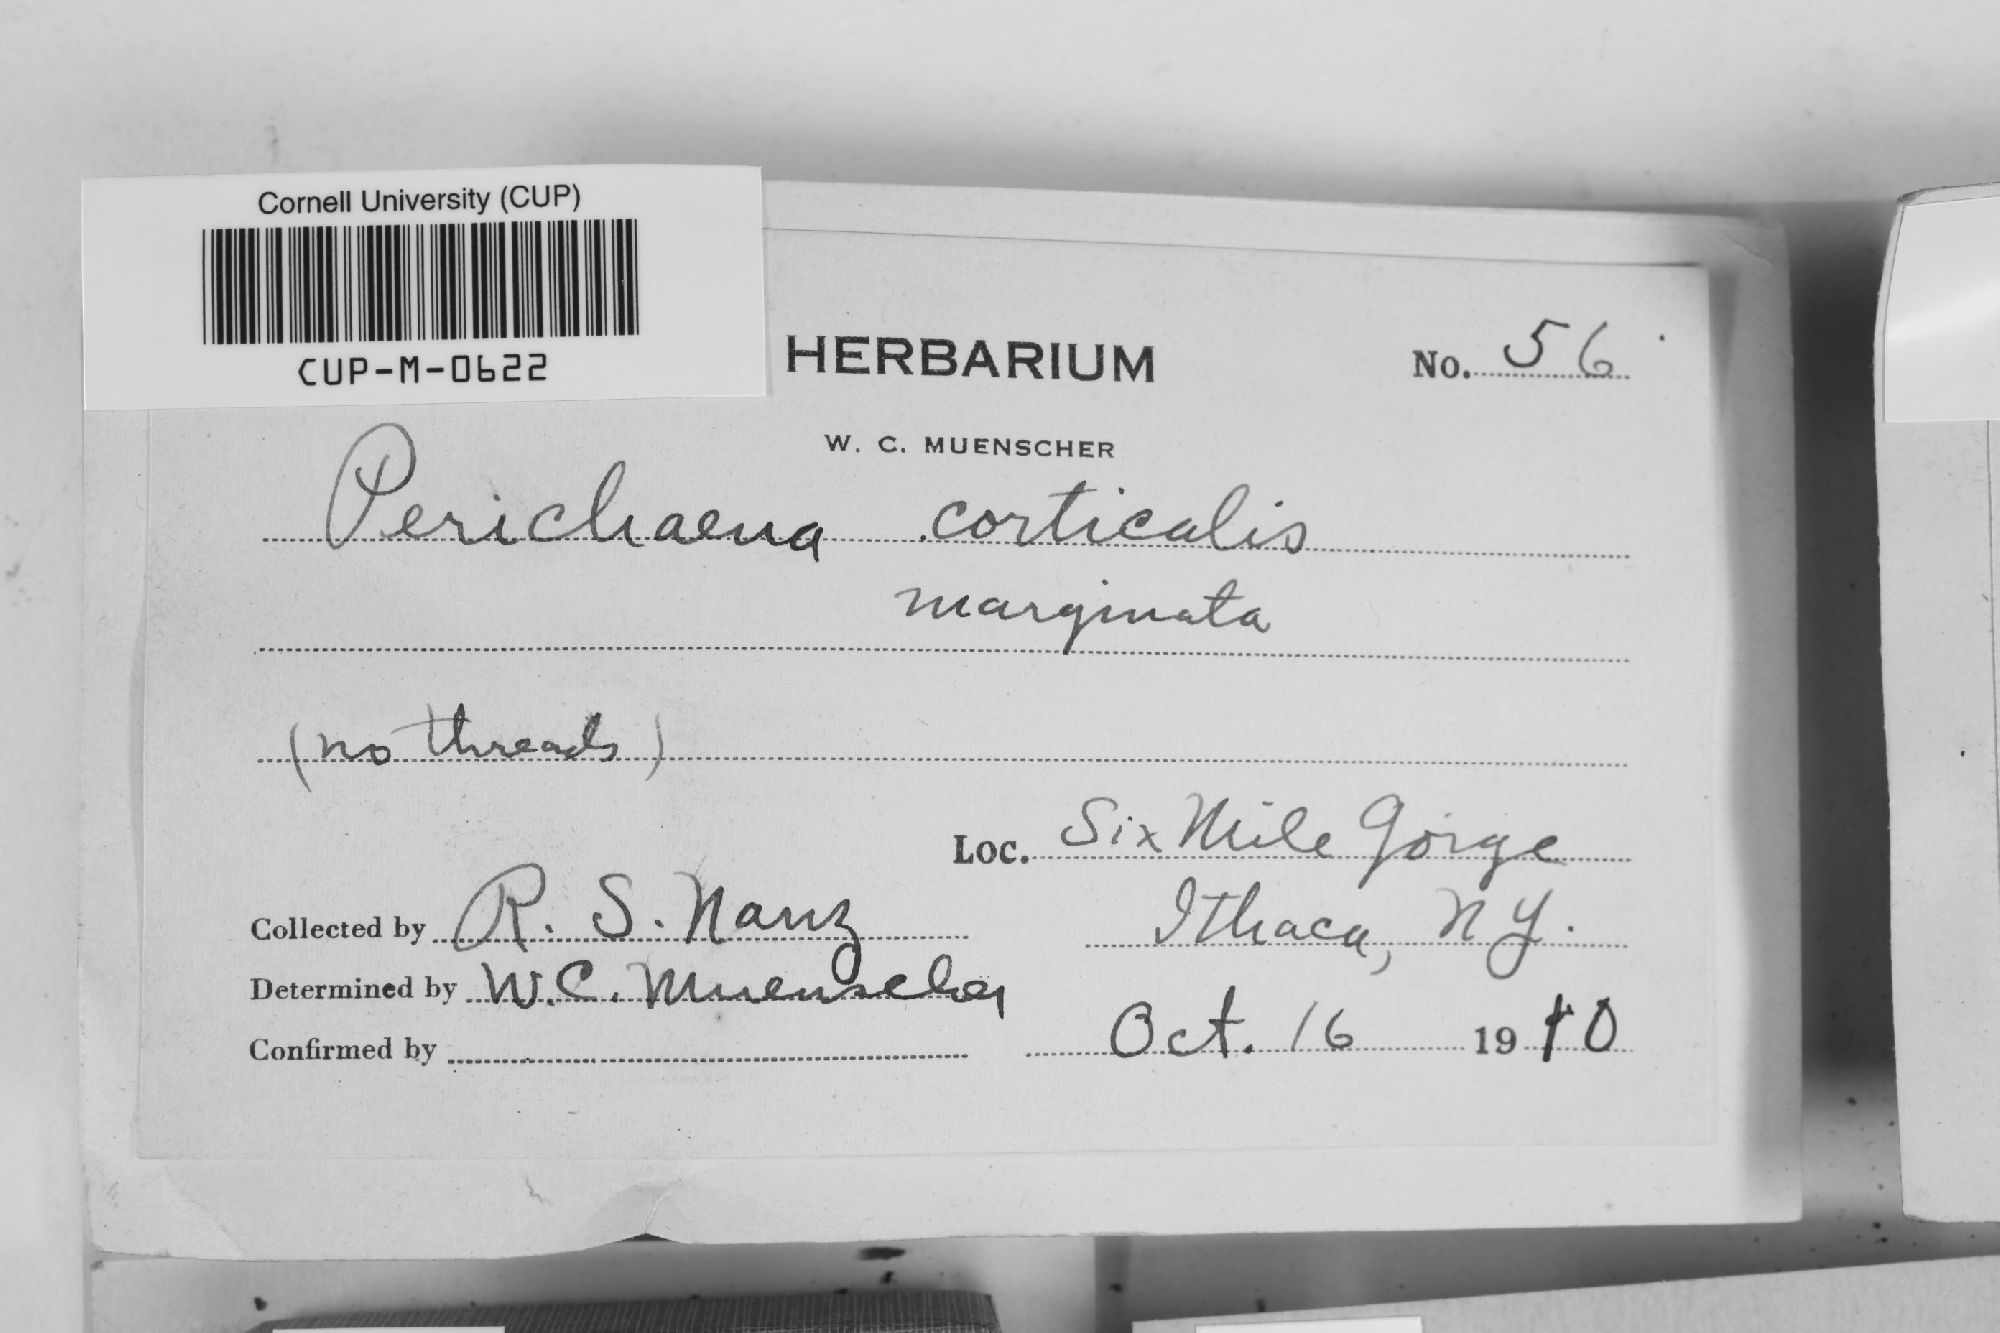 Cornell University (CUP)
CUP-M-0622
HERBARIUM
No. 56
W. C. MUENSCHER
Perichaena corticalis
marginata
(no threads)
Loc. Six Mile Gorge
Ithaca, N.Y.
Collected by R. S. Nanz
Determined by W.C. Muenscher
Confirmed by
Oct. 16 1910